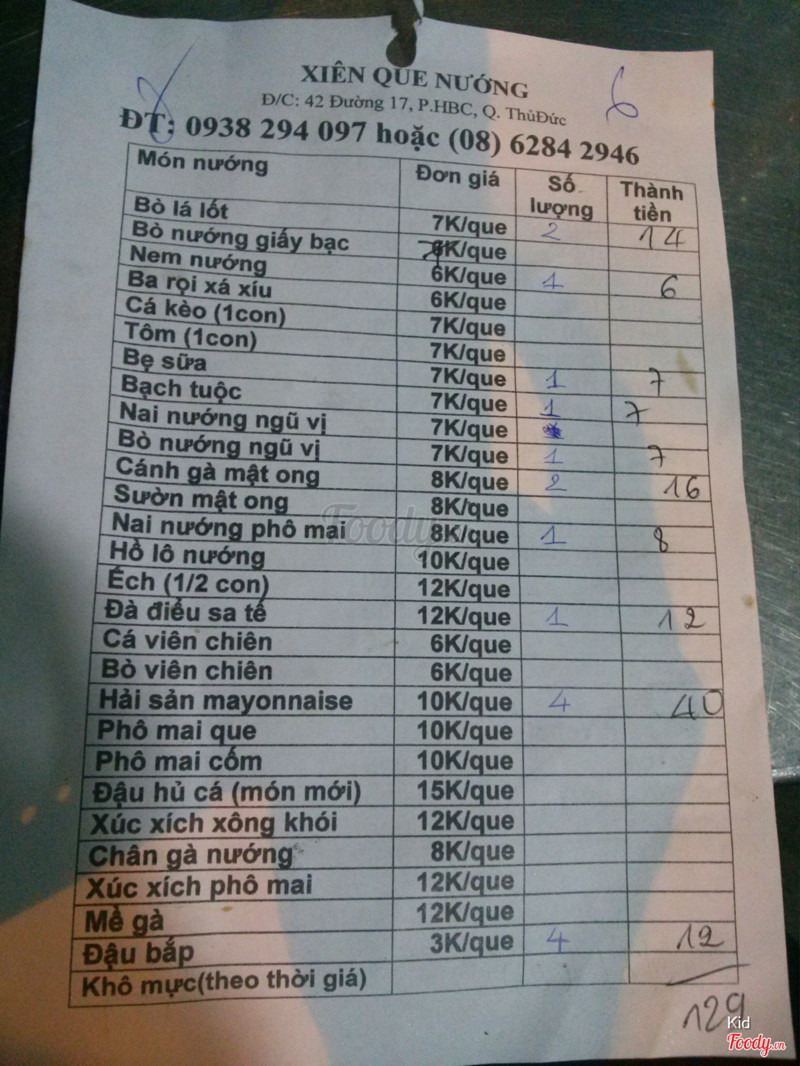 XIÊN QUE NƯỚNG
Đ/C: 42 Đường 17, P.HBC, Q. ThủĐức
ĐT: 0938 294 097 hoặc (08) 6284 2946
6
Món nướng Đơn giá Số lượng Thành tiền
Bò lá lốt 7K/que 2 14
Bò nướng giấy bạc 7K/que
Nem nướng 6K/que 1 6
Ba rọi xá xíu 6K/que
Cá kèo (1con) 7K/que
Tôm (1con) 7K/que
Bẹ sữa 7K/que 1 7
Bạch tuộc 7K/que 1 7
Nai nướng ngũ vị 7K/que
Bò nướng ngũ vị 7K/que 1 7
Cánh gà mật ong 8K/que 2 16
Sườn mật ong 8K/que
Nai nướng phô mai 8K/que 1 8
Hồ lô nướng 10K/que
Ếch (1/2 con) 12K/que
Đà điểu sa tế 12K/que 1 12
Cá viên chiên 6K/que
Bò viên chiên 6K/que
Hải sản mayonnaise 10K/que 4 40
Phô mai que 10K/que
Phô mai cốm 10K/que
Đậu hủ cá (món mới) 15K/que
Xúc xích xông khói 12K/que
Chân gà nướng 8K/que
Xúc xích phô mai 12K/que
Mề gà 12K/que
Đậu bắp 3K/que 4 12
Khô mực(theo thời giá)
129
Foody
Kid
Foody.vn